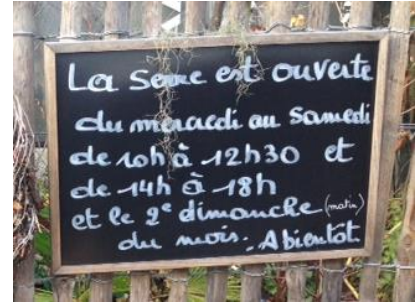 La Serre est ouverte
du mercredi au Samedi
de 10h à 12h30 et
de 14h à 18h
et le 2e dimanche (matin)
du mois. A bientôt